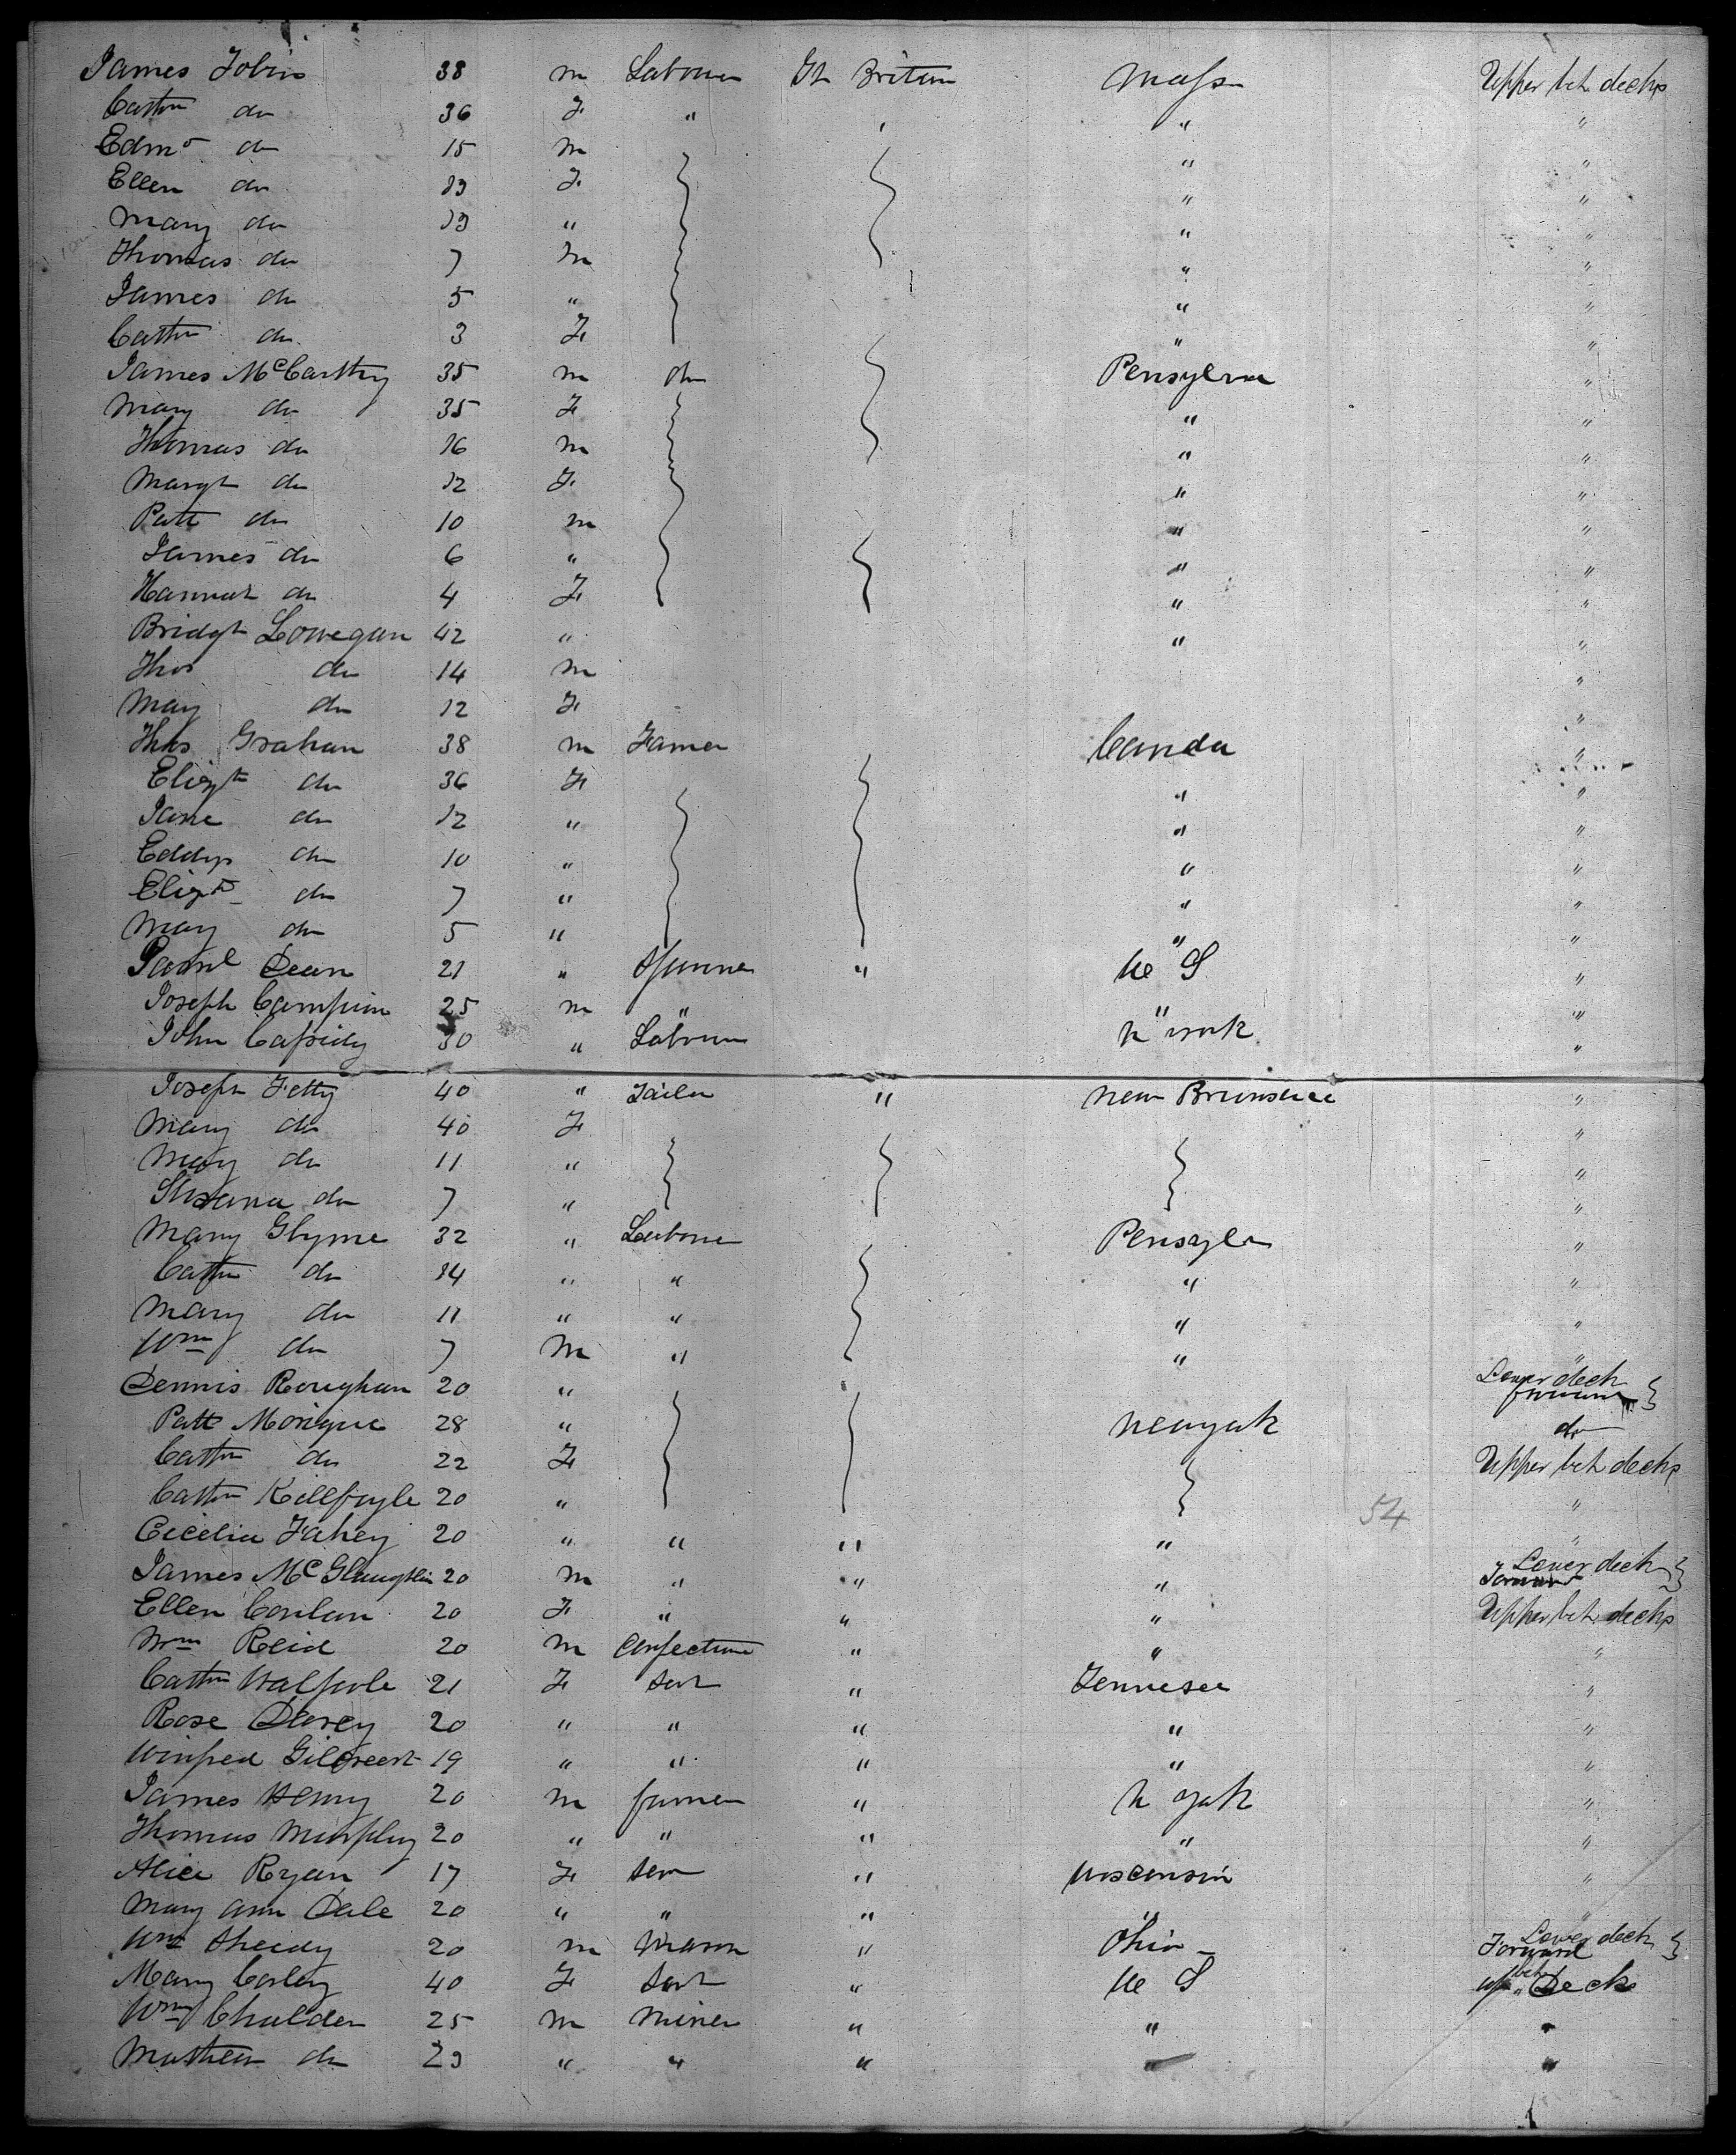 James Tobin 38 m Labourer Gt Britain Mass Upper bet decks
Cathn do 36 F " " " "
Edmd do 15 m " "
Ellen do 13 F " "
Mary do 13 " " "
Thomas do 7 m " "
James do 5 " " "
Cathn do 3 F " "
James McCarthy 35 m do Pensylva "
Mary do 35 F " "
Thomas do 16 m " "
Margt do 12 F " "
Patt do 10 m " "
James do 6 " " "
Hannah do 4 F " "
Bridgt Lonegan 42 " " "
Thos do 14 m "
Mary do 12 F "
Thos Graham 38 m Farmer Canda "
Elizth do 36 F " "
Jane do 12 " " "
Eddy do 10 " " "
Elizth do 7 " " "
Mary do 5 " " "
Dean 21 " Spinner " U S "
Joseph Campion 25 m " " "
John Cassidy 30 " Labourer N York "
Joseph Fetty 40 " Tailor " New Brunswic "
Mary do 40 F "
Mary do 11 " "
Susana do 7 " "
Mary Glynne 32 " Labourer Pensylva "
Cathn do 14 " " " "
Mary do 11 " " " "
Wm do 7 m " " "
Dennis Roughan 20 " Lower deck forward
Patt 28 " Newyork do
Cathn do 22 F Upper bet decks
Cathn Killfoyle 20 " " 54
Cecelia Fahey 20 " " " " "
James McGlaughlin 20 m " " " Lower deck Forward
Ellen Conlan 20 F " " " Upper bet decks
Wm Reid 20 m Confectioner " " "
Cathn Walpole 21 F Servt " Tennesee "
Rose Davey 20 " " " " "
Winfred Gilcreest 19 " " " " "
James Henry 20 m farmer " N York "
Thomas Murphy 20 " " " " "
Alice Ryan 17 F Serv " Wisconsin "
Mary Ann Dale 20 " " " " "
Wm Sheedy 20 m Mason " Ohio Lower deck Forward
Mary Corley 40 F Servt " U S Up bet Decks
Wm Chalder 25 m Miner " " "
Mathew do 23 " " " " "